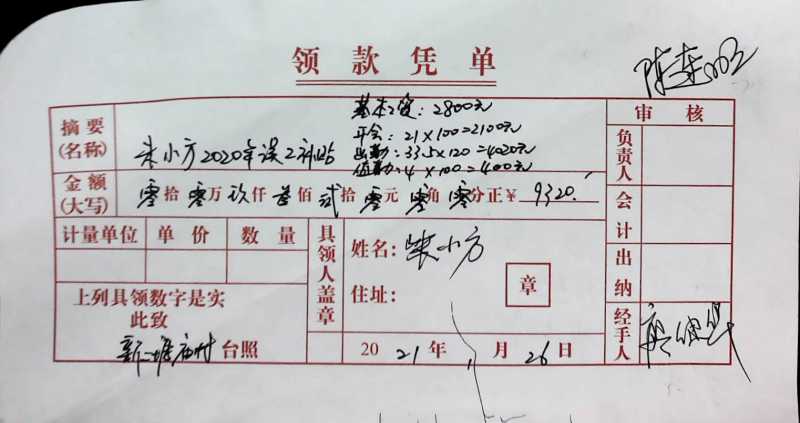 领款凭单
审核
摘要(名称)
朱小方2020年误工补贴
基本工资:2800元
开会:21×100=2100元
出勤:33.5×120=4020元
值勤:4×100=400元
金额(大写)
零拾零万玖仟叁佰贰拾零元零角零分正¥9320
计量单位 单价 数量
具领人盖章
姓名:朱小方
住址:
章
上列具领数字是实
此致
台照
2021年1月26日
负责人
会计
出纳
经手人